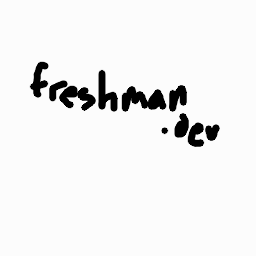 freshman
.dev